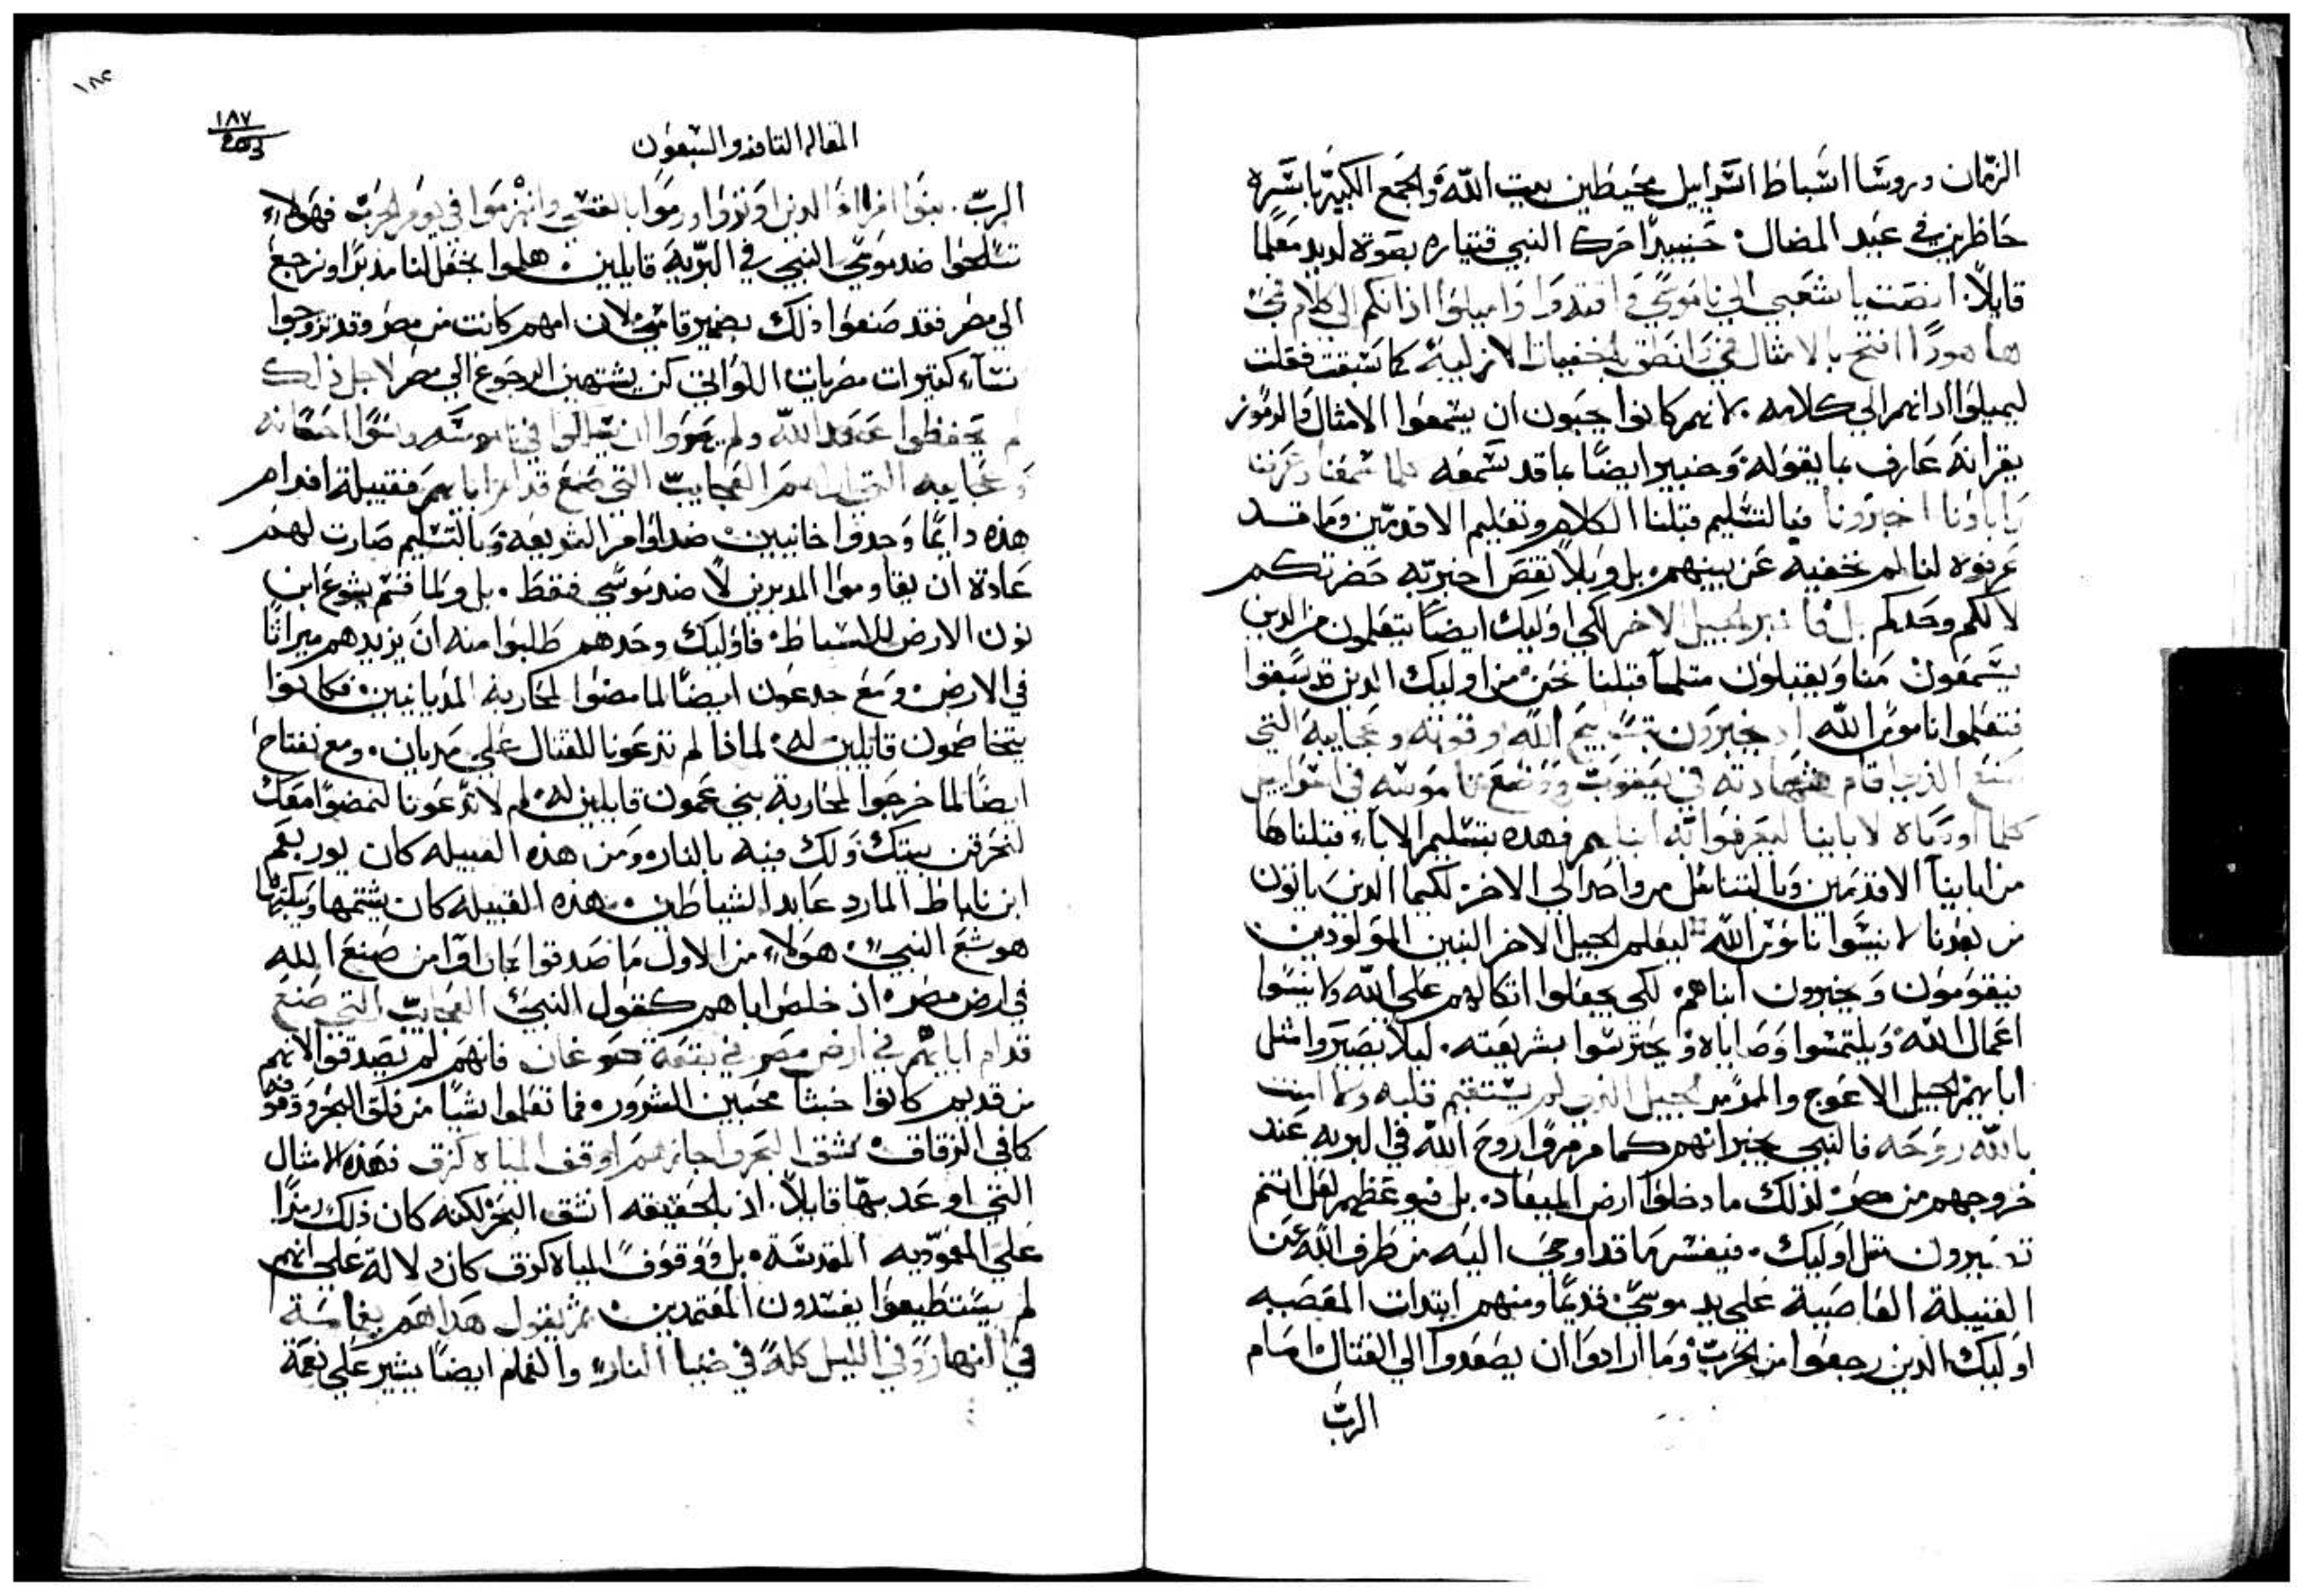 الزمان وروسا اسباط اسراييل محيطين ببيت الله والجمع الكبير باسره
حاظرين في عيد المضال: حنييدا حرك النبي قتياره بقوة لديد معلما
قايلا: انصت يا شعبي الي ناموسي في افتدوا واميلوا اذانكم الي كلام في
ها هودا افتح بالامثال في وانطق بالخفيات الازلية كما سبقت فقلت
ليميلوا اذانهم الي كلامه بانهم كانوا يحبون ان يسمعوا الامثال والرموز
يقر انه عارف بما يقوله وخبير ايضا بما قد سمعه كلما سمعنا وعرفنا
واباونا اخبرونا فبالتسليم قبلنا الكلام وتعليم الاقدمين وما قد
عرفوه لنا لم نخفيه عن بينهم بل وبلا نقص اخبر به حضرتكم
لا لكم وحدكم بل الجيل الاخر لكي اوليك ايضا يتعلمون من الدين
يسمعون منا ويقبلون متلما قبلنا نحن من اوليك الدين قد سبقوا
فتعلموا ناموس الله اذ يخبرون بتسابيح الله وقوته وعجايبه التي
صنع الذي اقام شهادته في يعقوب ووضع ناموسه في اسراييل
كلما اوصاه لابابينا ليعرفوا به ابناهم فهده بتسليم الاباء قبلناها
من ابابينا الاقدمين وبالتناقل من واحد الي الاخر لكيما الدين ياتون
من بعدنا لا ينسوا ناموس الله ليعلم الجيل الاخر البنين المولودين
فيقومون ويخبرون ابناهم لكي يجعلوا اتكالهم علي الله ولا ينسوا
اعمال الله ويلتمسوا وصاياه ويحترسوا بشريعته. ليلا يصيروا مثل
ابايهم الجيل الاعوج والمدمر الجيل الذي لم يستقيم قلبه ولا امنت
بالله روحه فالنبي يخبر انهم كما مرمروا روح الله في البريه عند
خروجهم من مصر لذلك ما دخلوا ارض الميعاد بل فيوعظهم لعل انتم
تصيرون مثل اوليك. فيفسر ما قد اوحي اليه من طرف الله عن
القبيلة الغاصبة علي يد موسي قديما ومنهم ابتدات المغصبه
اوليك الدين رجعوا من الحرب وما ارادوا ان يصعدوا الي القتال امام
الرب
١٨٤
١٨٧
203
المقاله التامنه والسبعون
الرب. بنوا افرام الدين اوتروا ورموا بالقسي وانهزموا في يوم الحرب فهولاء
تسلحوا ضد موسي النبي في البرية قايلين: هلموا نجعل لنا مدبرا ونرجع
الي مصر فقد صنعوا ذلك بضمير قاسي لان امهم كانت من مصر وقد تزوجوا
نساء كتيرات مصريات اللواتي كن يشتهين الرجوع الي مصر لاجل ذلك
لم يحفظوا عهد الله ولم يهووا ان يسالوا في ناموسه ونسوا احسانه
وعجايبه التي اراهم العجايب التي صنع قدام ابايهم فقبيلة افرام
هذه دايما وجدوا خانيين ضد اوامر الشريعة وبالتسليم صارت لهم
عادة ان يقاوموا المدبرين لا ضد موسي فقط. بل ولما قسم يشوع ابن
نون الارض للاسباط: فاوليك وحدهم طلبوا منه ان يزيدهم ميراثا
في الارض: ومع جدعون ايضا لما مضوا لمحاربة المديانيين: فكانوا
يتخاصمون قايلين له: لماذا لم تدعونا للقتال علي مديان. ومع نفتاح
ايضا لما خرجوا لمحاربة بني عمون قايلين له: لم لا تدعونا لنمضوا معك
لنحرقن بيتك ولك فيه بالنار ومن هذه القبيله كان يوربعم
ابن ناباط المارد عابد الشياطين. هذه القبيله كان يشتمها ويبكتها
هوشع النبي: هولاء من الاول ما صدقوا بما راوا من صنع الله
في ارض مصر: اذ خلص اباهم كقول النبي العجايب التي صنع
قدام ابايهم في ارض مصر في بقعة صوعان فانهم لم يصدقوا لانهم
من قديم كانوا خبثا محبين الشرور: فما تعلموا شيا من فلق البحر ووقوف
كما في الزقاق: شق البحر واجازهم اوقف المياه كزق فهذه الامثال
التي اوعد بها قايلا: اذ بالحقيقه انشق البحر لكنه كان ذلك رمزا
علي المعموديه المقدسة: بل ووقوف المياه كزق كان دلالة علي انهم
لم يستطيعوا يفسدون المعتمدين: ثم يقول هداهم بغمامة
في النهار وفي الليل كله في ضيا النار: والغمام ايضا يشير علي نعمة